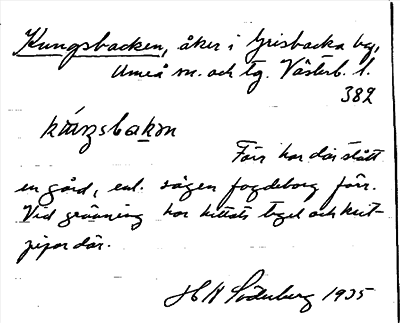 Kungsbacken, åker i Grisbacka by,
Umeå sn. och tg. Västerb. l.
382
Förr har där stått
en gård, enl. sägen fogdeborg förr.
Vid grävning har hittats tegel och krit-
pipor där.
H N Söderberg 1935